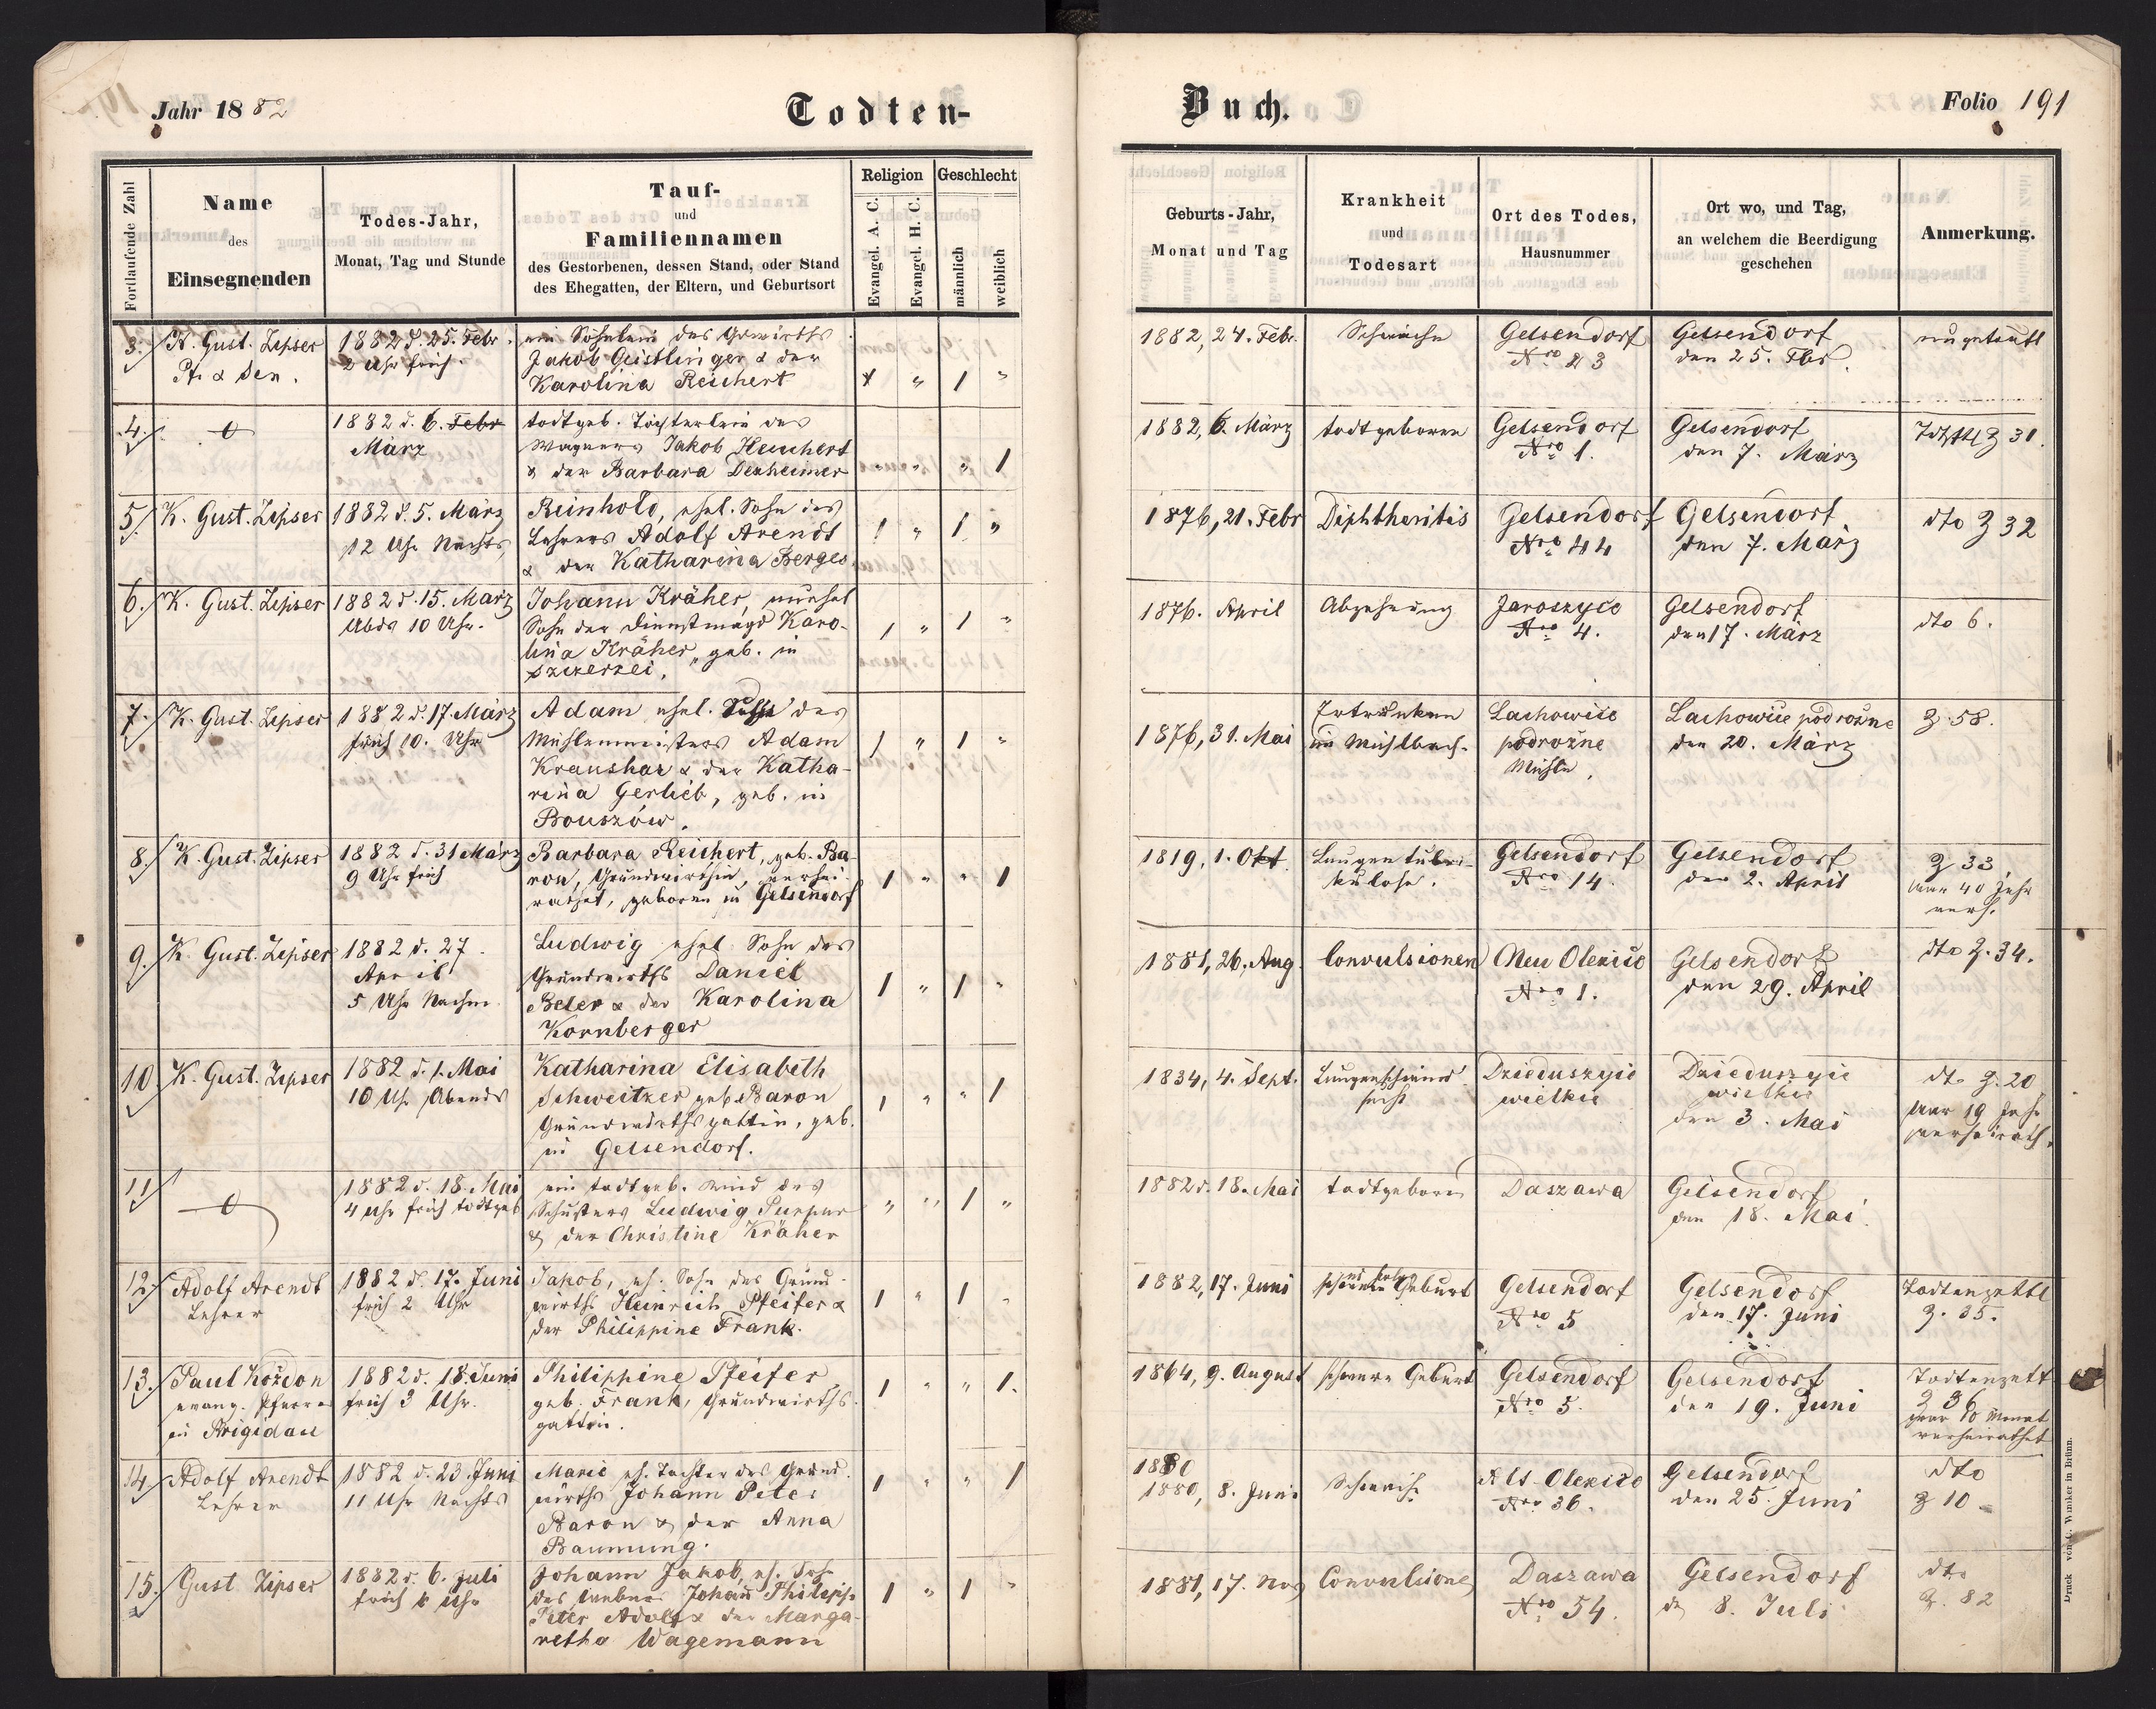 Jahr 1882
Todten-
Buch.
Folio 191
Fortlaufende Zahl
Name
des
Einsegnenden
Todes-Jahr,
Monat, Tag und Stunde
Tauf-
und
Familiennamen
des Gestorbenen, dessen Stand, oder Stand
des Ehegatten, der Eltern, und Geburtsort
Religion
Evangel. A. C.
Evangel. H. C.
Geschlecht
männlich
weiblich
Geburts-Jahr,
Monat und Tag
Krankheit
und
Todesart
Ort des Todes,
Hausnummer
Ort wo, und Tag,
an welchem die Beerdigung
geschehen
Anmerkung.
3.
K. Gust. Zipser
Pfr. & Sen.
1882 d. 25. Febr.
2 Uhr früh
ein Söhnlein des Grwirths
Jakob Geistlinger & der
Karolina Reichert
1882, 24. Febr.
Schwäche
Gelsendorf
Nro 23
Gelsendorf
den 25. Fbr.
ungetauft
4.
1882 d. 6. Febr
März
todtgeb. Töchterlein des
Wagners Jakob Heuchert
& der Barbara Dexheimer
1882, 6. März
todtgeboren
Gelsendorf
Nro 1.
Gelsendorf
den 7. März
Tdtzttl Z 31.
5.
K. Gust. Zipser
1882 d. 5. März
12 Uhr Nachts
Reinhold, ehel. Sohn des
Lehrers Adolf Arendt
& der Katharina Berges
1876, 21. Febr
Diphtheritis
Gelsendorf
Nro 44
Gelsendorf
den 7. März
dto Z 32
6.
K. Gust. Zipser
1882 d. 15. März
Abds 10 Uhr.
Johann Kräher, unehel
Sohn der Dienstmagd Karo-
lina Kräher, geb. in
1876. April
Abzehrung
Jaroszyce
Nro 4.
Gelsendorf
den 17. März
dto 6.
7.
K. Gust. Zipser
1882 d. 17. März
früh 10. Uhr
Adam ehel. Sohn des
Mühlenmeisters Adam
Kraushar & der Katha-
rina Gerlieb, geb. in
Bouszów.
1876, 31. Mai
Ertrunken
im Mühlbach.
Lachowice
podrożne
Mühle.
Lachowice podrożne
den 20. März
Z. 58.
8.
K. Gust. Zipser
1882 d. 31 März
9 Uhr früh
Barbara Reichert, geb. Ba-
ron, Grundwirthin, verhei-
rathet, geboren in Gelsendorf
1819, 1. Okt
Lungentuber-
kulose.
Gelsendorf
Nro 14.
Gelsendorf
den 2. April
Z 33
war 40 Jahr
verh.
9.
K. Gust. Zipser
1882 d. 27.
April
5 Uhr Nachm.
Ludwig ehel. Sohn des
Grundwirths Daniel
Beler & der Karolina
Kornberger
1881, 26. Aug.
Convulsionen
Neu Olexice
Nro 1.
Gelsendorf
den 29. April
dto Z. 34.
10
K. Gust. Zipser
1882 d. 1. Mai
10 Uhr Abends
Katharina Elisabeth
Schweitzer geb. Baron
Grundwirthsgattin, geb.
in Gelsendorf.
1834, 4. Sept.
Lungenschwind
sucht
Dzieduszyce
wielkie
Dzieduszyce
wielkie
den 3. Mai
dto Z. 20
war 19 Jahr
verheirath.
11
1882 d. 18. Mai
4 Uhr früh todtgeb
ein todtgeb. Kind des
Schusters Ludwig Purpur
& der Christine Kräher
1882 d. 18. Mai
todtgeboren
Daszawa
Gelsendorf
den 18. Mai.
12
Adolf Arendt
Lehrer
1882 d. 17. Juni
früh 2 Uhr
Jakob, eh. Sohn des Grund-
wirths Heinrich Pfeifer &
der Philippine Frank.
1882, 17. Juni
Geburt
Gelsendorf
Nro 5
Gelsendorf
den 17. Juni
Todtenzettl
Z. 35.
13.
Paul Kożdon
evang. Pfarrer
in Brigidau
1882 d. 18. Juni
früh 3 Uhr.
Philippine Pfeifer,
geb. Frank, Grundwirths-
gattin.
1864, 9. August
schwere Geburt
Gelsendorf
Nro 5.
Gelsendorf
den 19. Juni
Todtenzett
Z 36
war 10 Monat
verheirathet
14.
Adolf Arendt
Lehrer
1882 d. 23. Juni
11 Uhr Nachts
Marie eh. Tochter des Grund-
wirths Johann Peter
Baron & der Anna
Baumung.
1880
1880, 8. Juni
Schwäche
Alt-Olexice
Nro 36.
Gelsendorf
den 25. Juni
dto
Z 10
15.
Gust Zipser
1882 d. 6. Juli
früh Uhr
Johann Jakob, eh. Sohn
des Webers Johann Philipp
Peter Adolf & der Marga-
retha Wagemann
1881, 17. Nov
Convulsionen
Daszawa
Nro 54.
Gelsendorf
d. 8. Juli
dto
Z. 82
Druck von C. Winiker in Brünn.